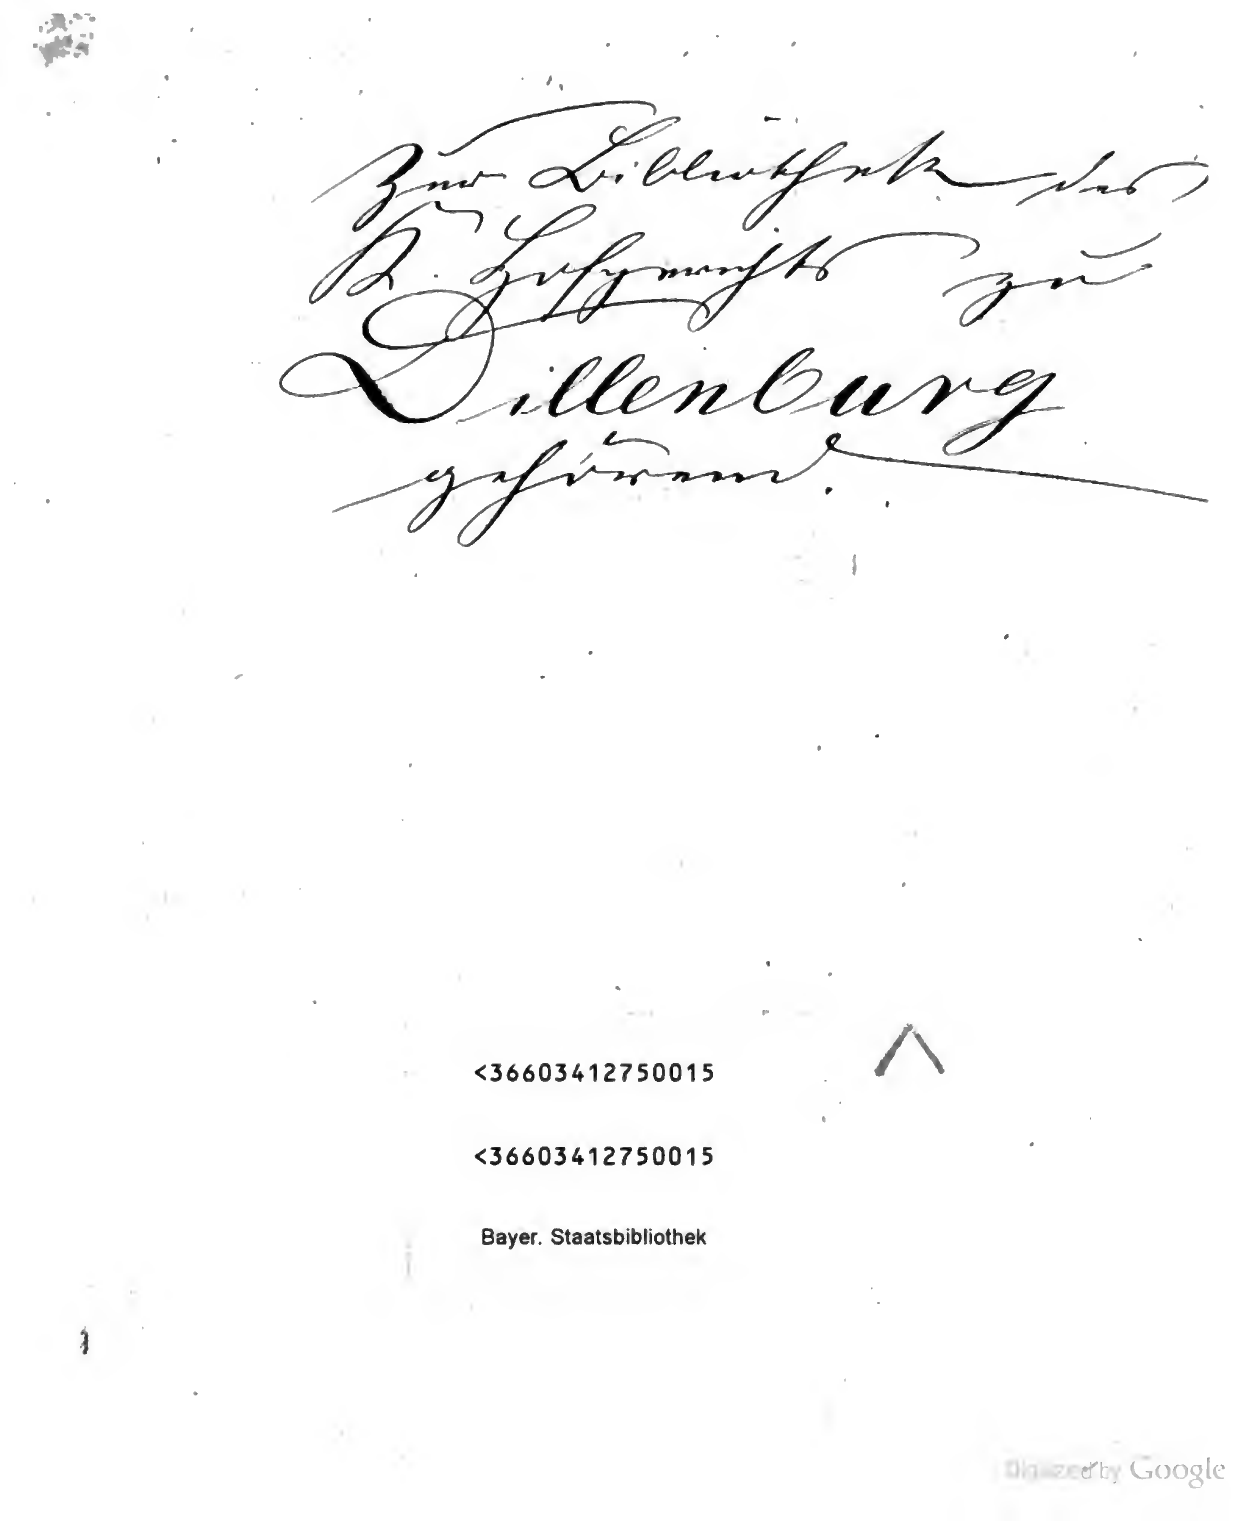 Zur Bibliothek des
K. Hofgerichts zu
Dillenburg
gehörend.
<36603412750015
<36603412750015
Bayer. Staatsbibliothek
Digitized by Google